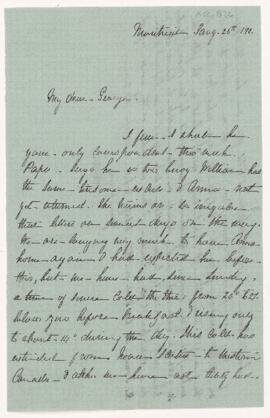 Montreal Jany. 25th 18
My dear George
I fear I shall be
your only correspondent this week.
Papa says he is too busy William has
the same tiresome excuse & Anna not
yet returned. The trains are so irregular
these letters are several days on the way.
We are longing very much to have Anna
home again I had expected her before
this, but we have had, since Sunday,
a time of severe cold. the ther. from 20° to 25°
below zero before breakfast & rising only
to about 10° during the day. This cold has
extended from Nova Scotia to Western
Canada & altho we have not that had